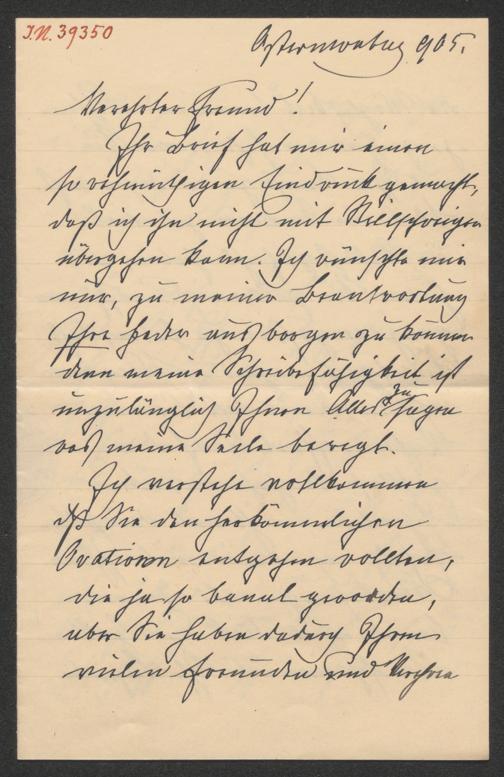 J.N. 39350
Ostermontag 905.
Verehrter Freund!
Ihr Brief hat mir einen
so wehmüthigen Eindruck gemacht,
daß ich ihn nicht mit Stillschweigen
übergehen kann. Ich wünschte mir
nur, zu meiner Beantwortung
Ihre Feder ausborgen zu können
denn meine Schreibefähigkeit ist
unzulänglich Ihnen Alles zu sagen
was meine Seele bewegt.
Ich verstehe vollkommen
dß Sie den herkömmlichen
Ovationen entgehen wollten,
die ja so banal geworden,
aber Sie haben dadurch Ihren
vielen Freunden und Verehrern